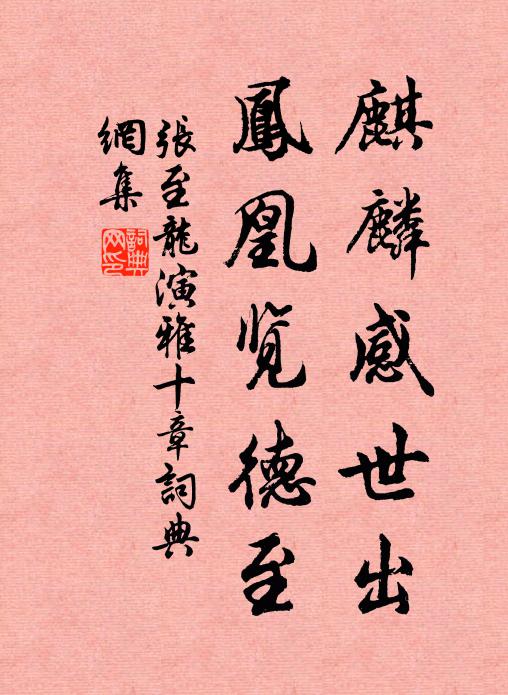 麒麟感世出
鳳凰览德至
張至龍演雅十章詞典
網集
詞典
网印